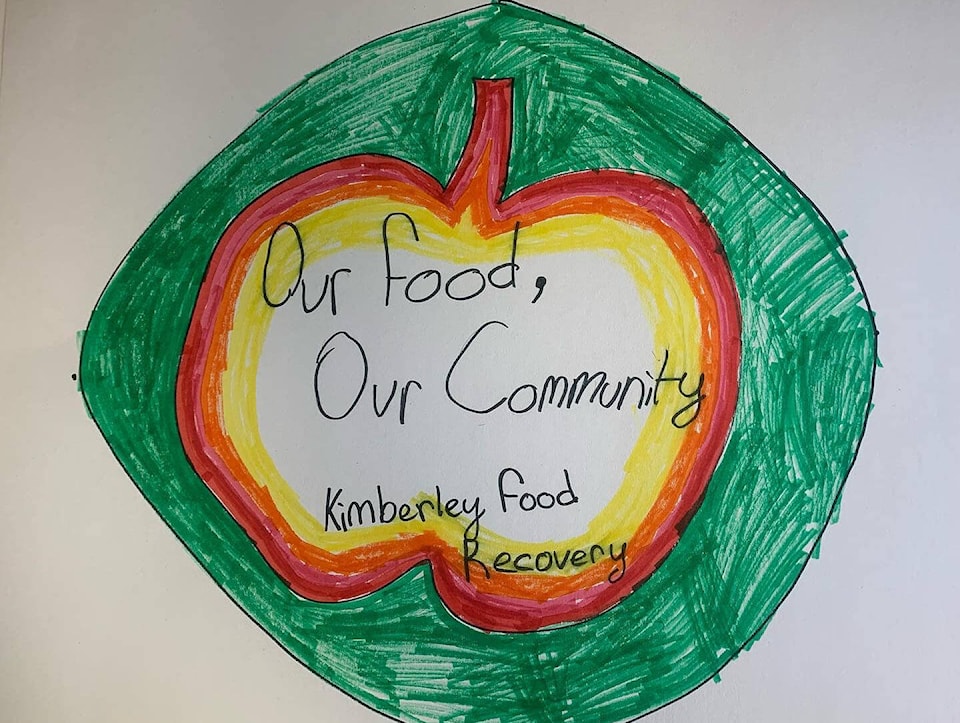 Our Food,
Our Community
Kimberley Food
Recovery